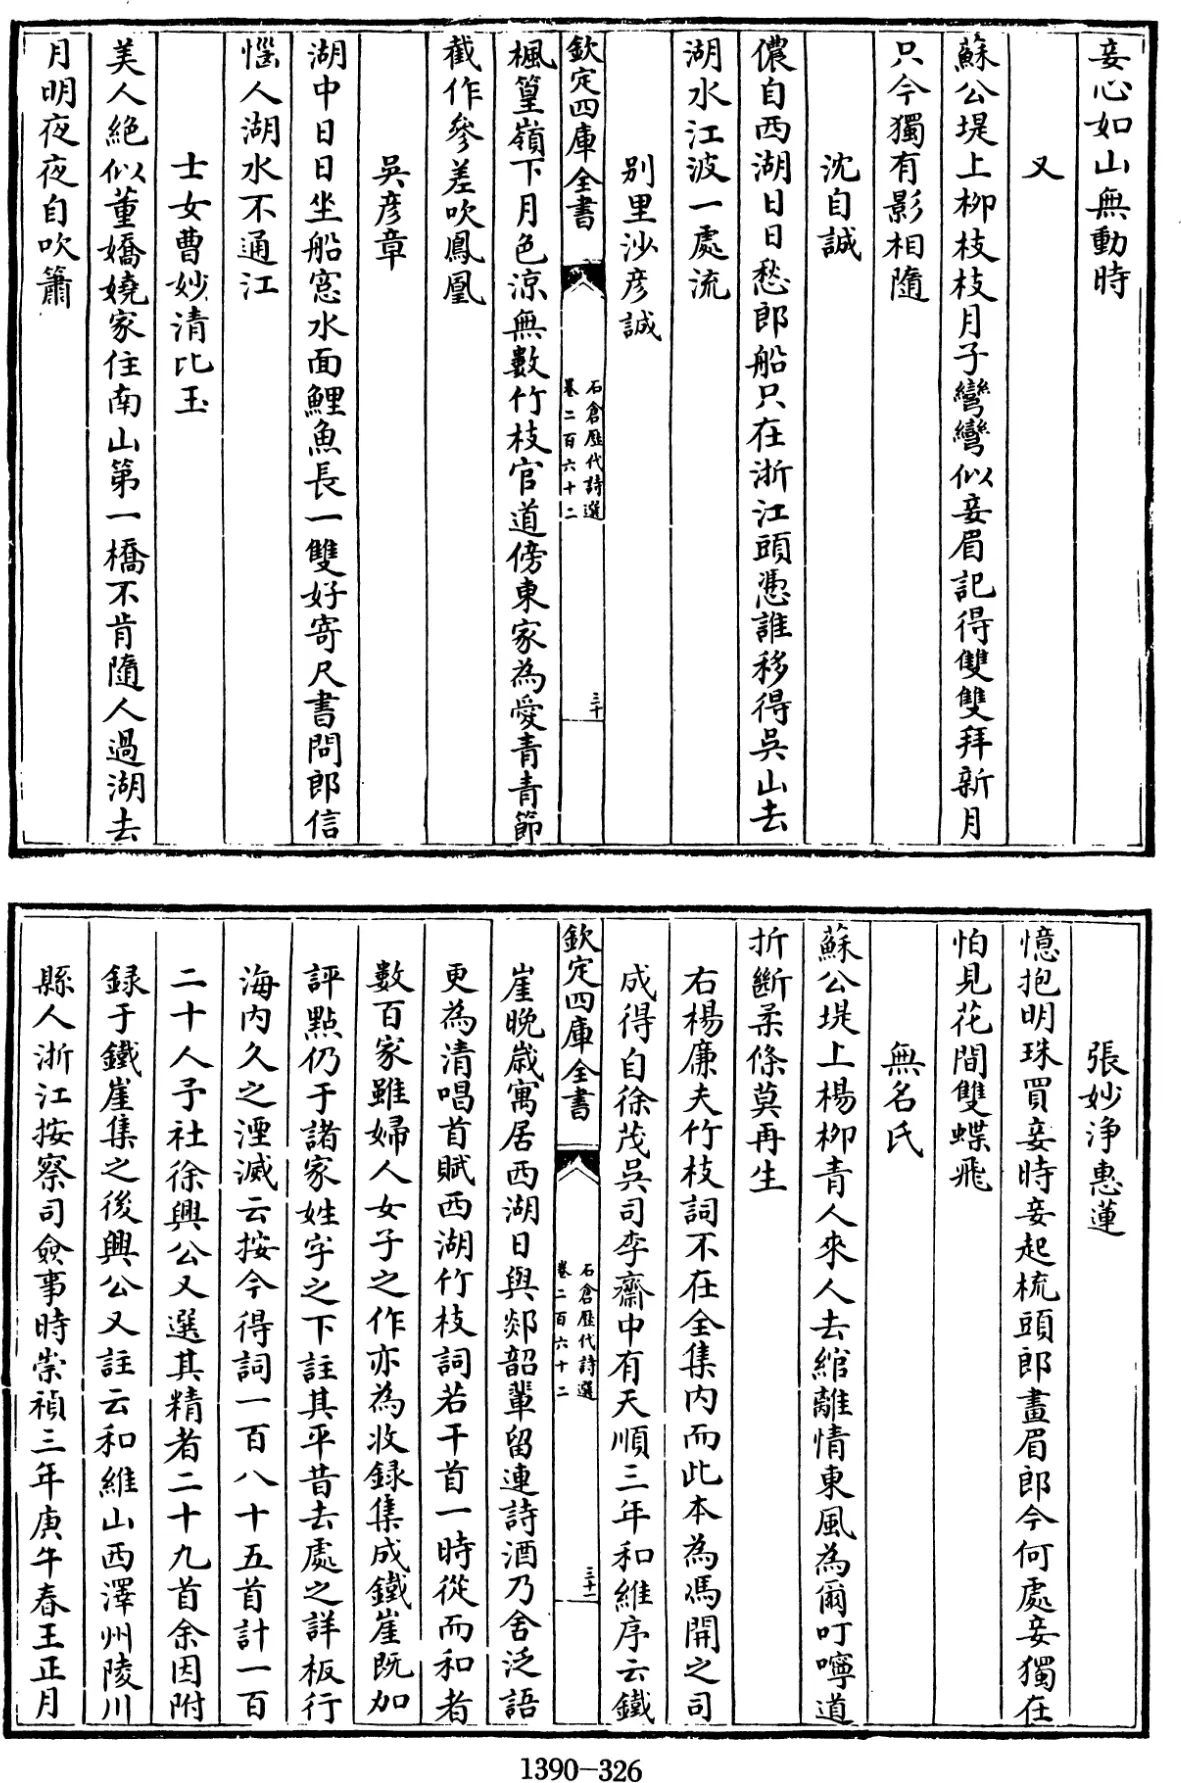 妾心如山無動時
又
蘇公堤上柳枝枝月子彎彎似妾眉記得雙雙拜新月
只今獨有影相隨
沈自誠
儂自西湖日日愁郎船只在浙江頭憑誰移得吳山去
湖水江波一處流
别里沙彦誠
欽定四庫全書
石倉歷代詩選
卷二百六十二
三十
楓篁嶺下月色涼無數竹枝官道傍東家為愛青青節
截作參差吹鳳凰
吳彦章
湖中日日坐船窓水面鯉魚長一雙好寄尺書問郎信
惱人湖水不通江
士女曹妙清比玉
美人絶似董嬌嬈家住南山第一橋不肯隨人過湖去
月明夜夜自吹簫
張妙浄惠蓮
憶抱明珠買妾時妾起梳頭郎畫眉郎今何處妾獨在
怕見花間雙蝶飛
無名氏
蘇公堤上楊柳青人來人去綰離情東風為爾叮嚀道
折斷柔條莫再生
右楊廉夫竹枝詞不在全集内而此本為馮開之司
成得自徐茂吳司李齋中有天順三年和維序云鐵
欽定四庫全書
石倉歷代詩選
卷二百六十二
三十一
崖晚歲寓居西湖日與郯韶輩留連詩酒乃舍泛語
更為清唱首賦西湖竹枝詞若干首一時從而和者
數百家雖婦人女子之作亦為收録集成鐵崖既加
評點仍于諸家姓字之下註其平昔去處之詳板行
海内久之湮滅云按今得詞一百八十五首計一百
二十人予社徐興公又選其精者二十九首余因附
録于鐵崖集之後興公又註云和維山西澤州陵川
縣人浙江按察司僉事時崇禎三年庚午春王正月
1390-326